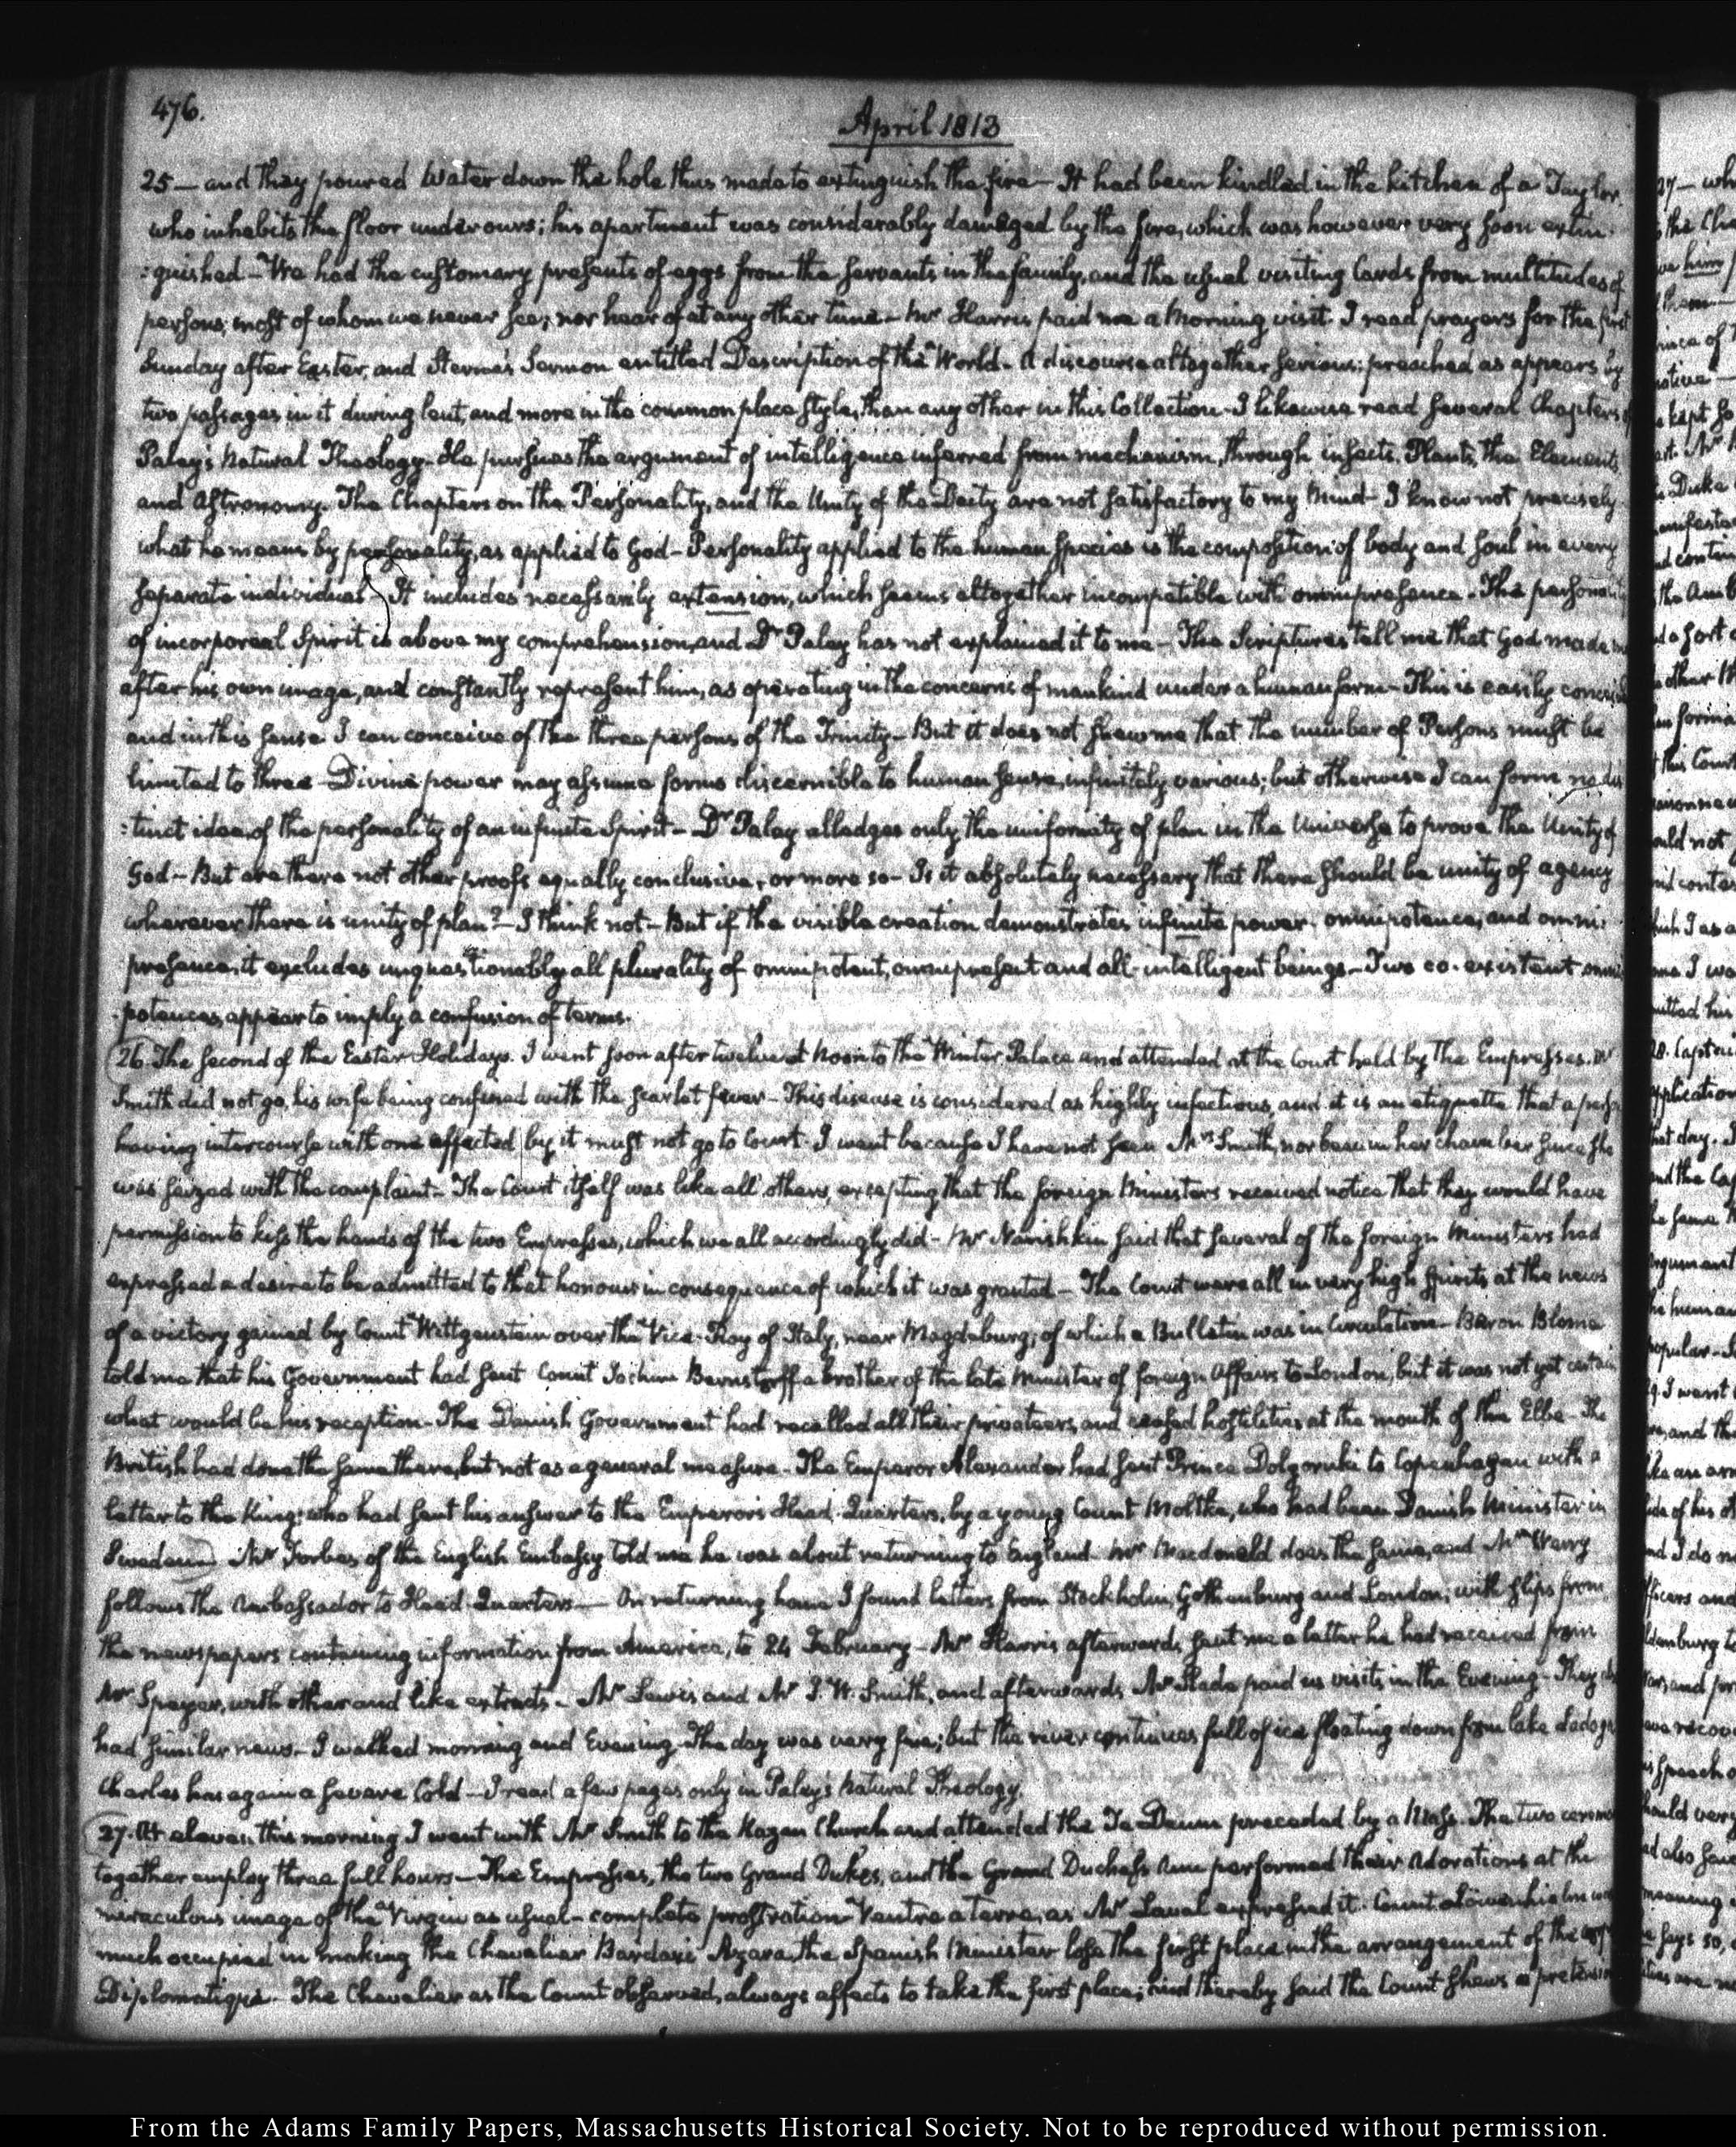 476.
April 1813
25 — and they poured Water down the hole thus made to extinguish the fire — It had been kindled in the kitchen of a Taylor,
who inhabits the floor under ours; his apartment was considerably damaged by the fire, which was however very soon extin:
:guished — We had the customary presents of eggs from the servants in the family, and the usual visiting Cards from multitudes of
persons, most of whom we never see, nor hear of at any other time — Mr Harris paid me a Morning visit. I read prayers for the first
Sunday after Easter, and Sterne's Sermon entitled Description of the World. A discourse altogether serious: preached as appears by
two passages in it during lent, and more in the common place style, than any other in this Collection — I likewise read several Chapters of
Paley's Natural Theology — He pursues the argument of intelligence inferred from mechanism, through insects, Plants, the Elements
and Astronomy. The Chapters on the Personality, and the Unity of the Deity are not satisfactory to my Mind — I know not precisely
what he means by personality, as applied to God — Personality applied to the human species is the composition of body and soul in every
separate individual — It includes necessarily extension, which seems altogether incompatible with omnipresence — The personality
of incorporeal Spirit is above my comprehension, and Dr Paley has not explained it to me — The Scriptures tell me that God made
after his own image, and constantly represent him, as operating in the concerns of mankind under a human form — This is easily conceived
and in this sense I can conceive of the three persons of the Trinity — But it does not shew me that the number of Persons must be
limited to three — Divine power may assume forms discernible to human sense, infinitely various; but otherwise I can form no dis
:tinct idea, of the personality of an infinite Spirit — Dr Paley alledges only the uniformity of plan in the Universe to prove the Unity of
God — But are there not other proofs equally conclusive, or more so — Is it absolutely necessary that there should be unity of agency
wherever there is unity of plan? — I think not — But if the visible creation demonstrates infinite power, omnipotence, and omni:
presence, it excludes unquestionably all plurality of omnipotent, omnipresent and all-intelligent beings — Two co-existent omni
potences, appear to imply a confusion of terms.
26. The second of the Easter Holidays. I went soon after twelve at Noon to the Winter Palace and attended at the Court held by the Empresses. Mr
Smith did not go, his wife being confined with the scarlet fever — This disease is considered as highly infectious, and it is an etiquette that a person
having intercourse with one affected by it must not go to Court. I went because I have not seen Mrs Smith, nor been in her chamber since she
was seized with the complaint — The Court itself was like all others, excepting that the foreign Ministers received notice that they would have
permission to kiss the hands of the two Empresses, which we all accordingly did — Mr Narishkin said that several of the foreign Ministers had
expressed a desire to be admitted to that honour in consequence of which it was granted — The Court were all in very high spirits at the news
of a victory gained by Count Wittgenstein over the Vice-Roy of Italy, near Magdeburg; of which a Bulletin was in Circulation — Baron Blome
told me that his Government had sent Count Joachim Bernstorff a brother of the late Minister of foreign Affairs to London, but it was not yet certain
what would be his reception — The Danish Government had recalled all their privateers, and ceased hostilities at the mouth of the Elbe — The
British had done the same there, but not as a general measure — The Emperor Alexander had sent Prince Dolgoruki to Copenhagen with a
letter to the King; who had sent his answer to the Emperor's Head-Quarters, by a young Count Moltke, who had been Danish Minister in
Sweden — Mr Forbes of the English Embassy told me he was about returning to England. Mr Macdonald does the same, and Mr Werry
follows the Ambassador to Head-Quarters — On returning home I found letters from Stockholm, Gothenburg and London, with slips from
the newspapers containing information from America, to 24 February — Mr Harris afterwards sent me a letter he had received from
Mr Speyer, with other and like extracts — Mr Lewis and Mr J. W. Smith, and afterwards Mr Slade paid us visits in the Evening — They all
had similar news — I walked morning and Evening — The day was very fine; but the river continues full of ice floating down from lake Ladoga
Charles has again a severe Cold — I read a few pages only in Paley's Natural Theology.
27. At eleven this morning I went with Mr Smith to the Kazan Church and attended the Te Deum preceded by a Mass. The two
together employ three full hours — The Empresses, the two Grand Dukes, and the Grand Duchess Ann performed their adorations at the
miraculous image of the Virgin as usual — complete prostration — Ventre a terre, as Mr Laval expressed it. Count Löwenhielm was
much occupied in making the Chevalier Bardaxi Azara, the Spanish Minister lose the first place in the arrangement of the Corps
Diplomatique — The Chevalier as the Count observed, always affects to take the first place; and thereby said the Count shews a pretension
From the Adams Family Papers, Massachusetts Historical Society. Not to be reproduced without permission.